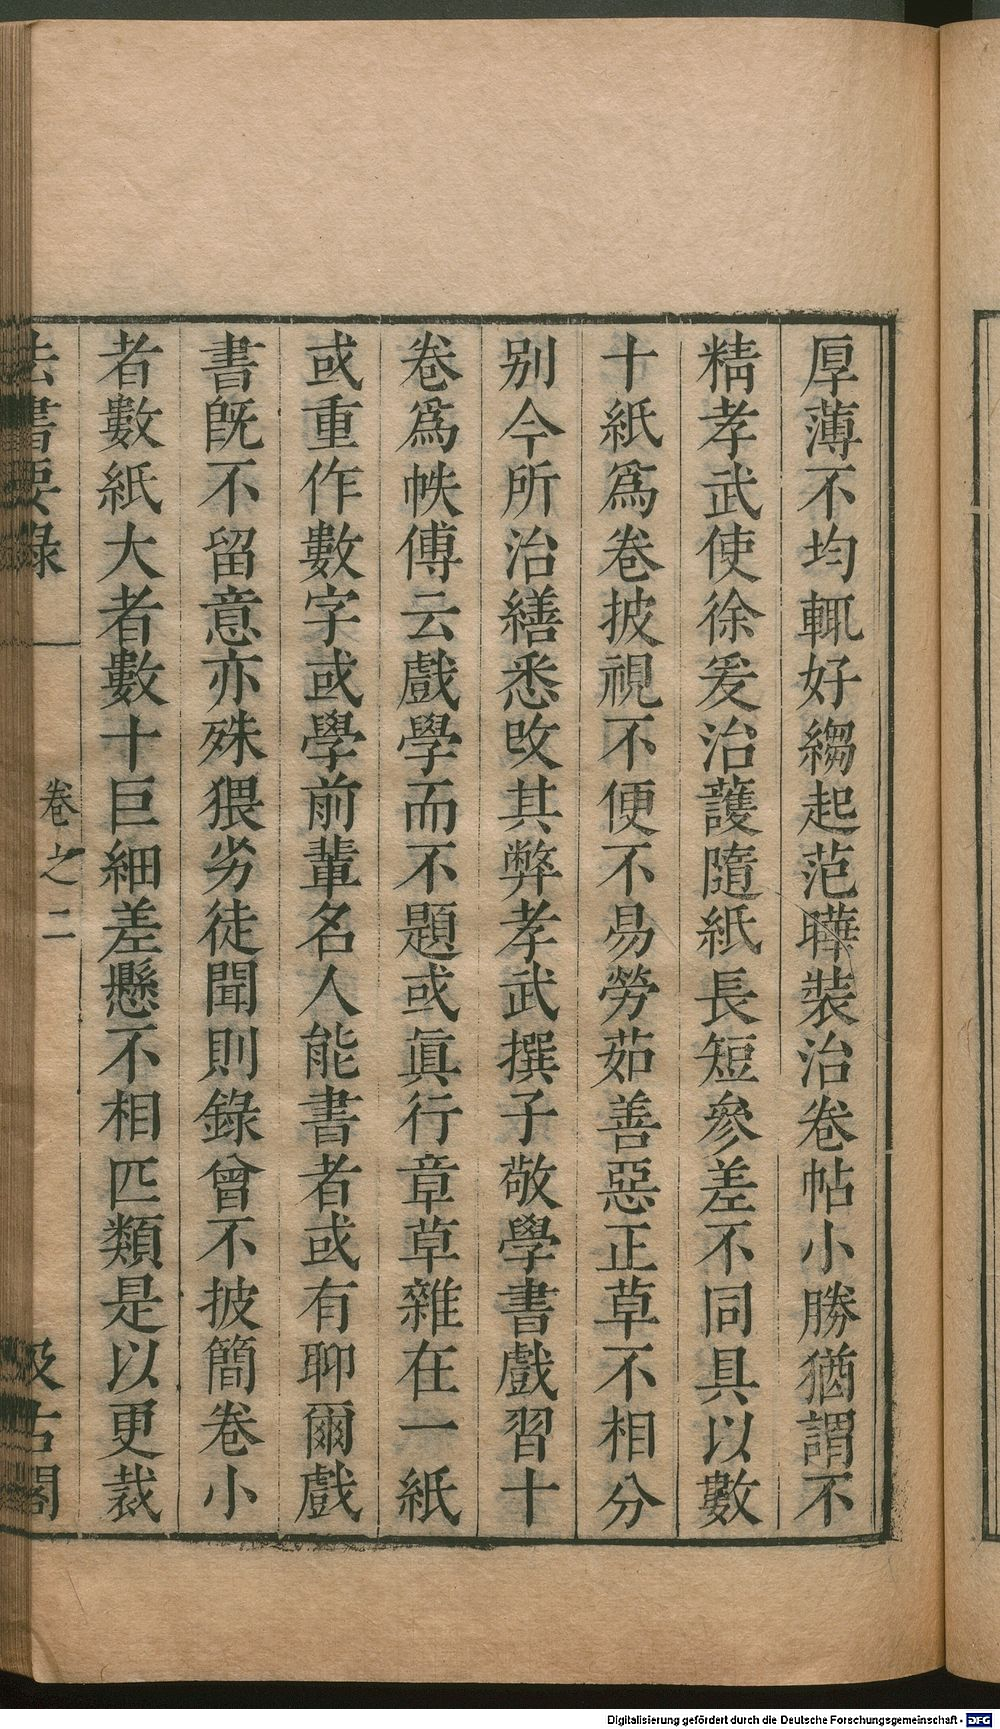 厚薄不均輒好縐起范曄裝治卷帖小勝猶謂不
精孝武使徐爰治護隨紙長短參差不同具以數
十紙爲卷披視不便不易勞茹善惡正草不相分
别今所治繕悉改其弊孝武撰子敬學書戲習十
卷爲帙傅云戲學而不題或眞行章草雜在一紙
或重作數字或學前輩名人能書者或有聊爾戲
書旣不留意亦殊猥劣徒聞則錄曾不披簡卷小
者數紙大者數十巨細差懸不相匹類是以更裁
法書要錄 卷之二 汲古閣
Digitalisierung gefördert durch die Deutsche Forschungsgemeinschaft - DFG